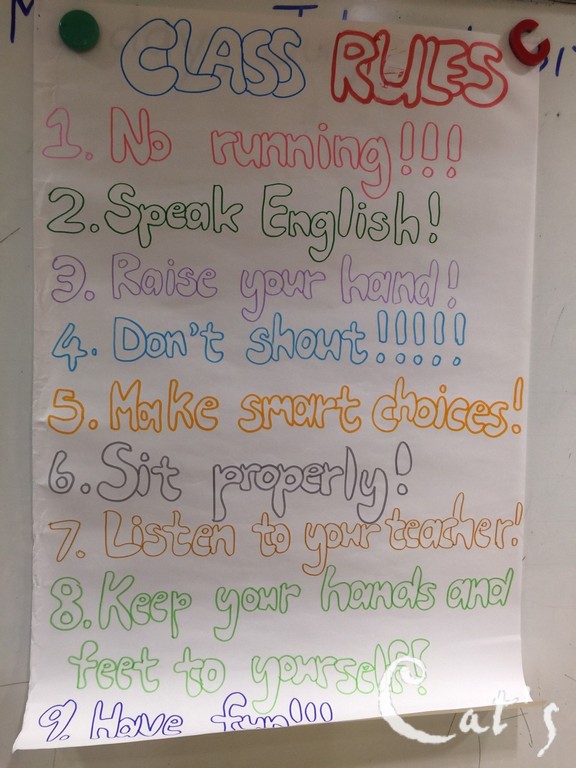 CLASS RULES
1. No running!!!
2. Speak English!
3. Raise your hand!
4. Don't shout!!!!!
5. Make smart choices!
6. Sit properly!
7. Listen to your teacher!
8. Keep your hands and
feet to yourself!
9. Have fun!!!
Cat's